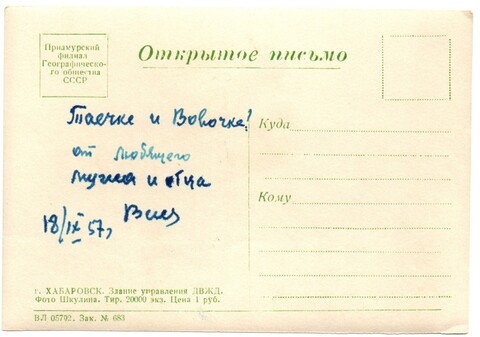 Приамурский
филиал
Географическо-
го общества
СССР
Открытое письмо
Таечке и Вовочке!
от любящего
мужа и отца
18/IX 57,
Куда
Кому
г. ХАБАРОВСК. Здание управления ДВЖД.
Фото Шкулина. Тир. 20000 экз. Цена 1 руб.
ВЛ 05792. Зак. № 683